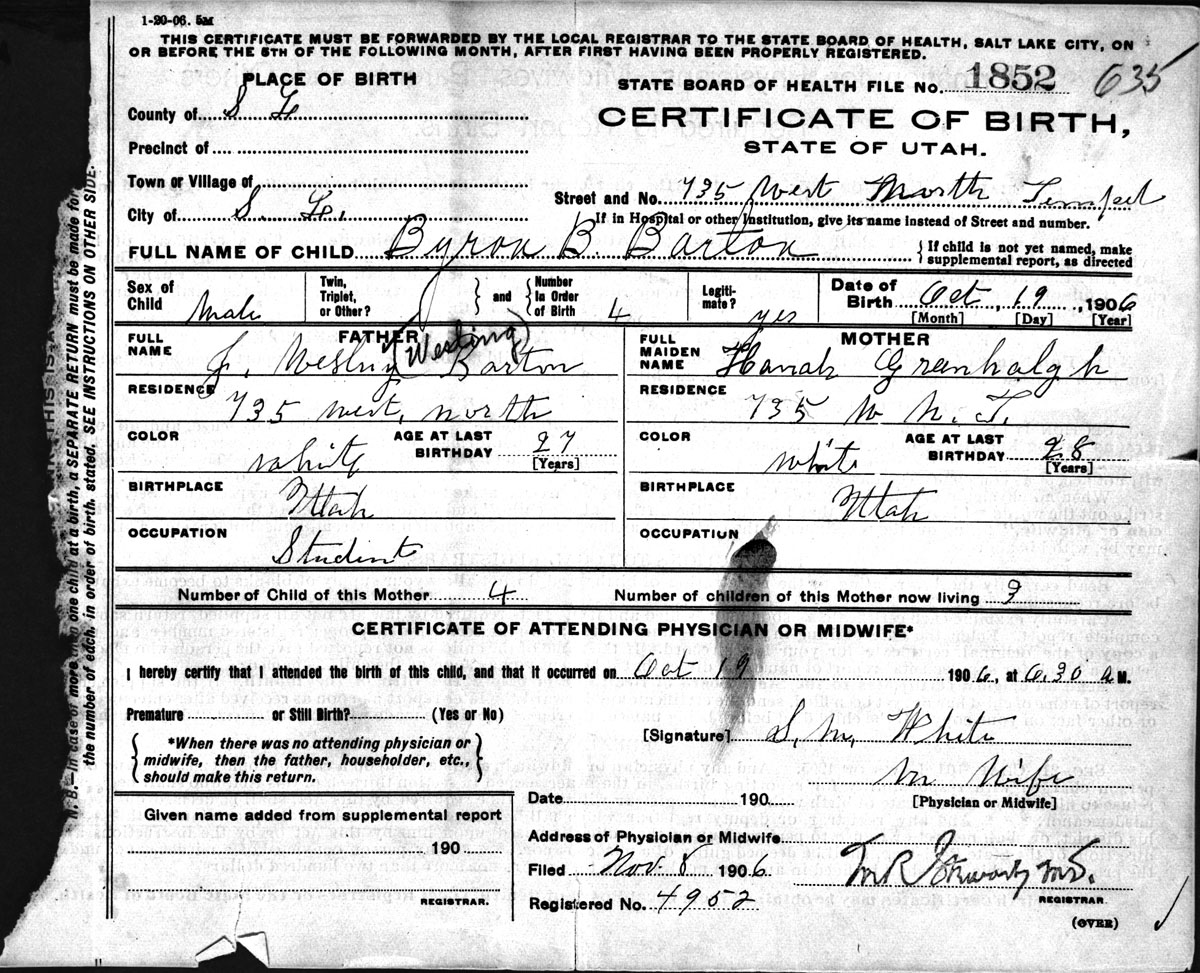 1-20-06. 5M
THIS CERTIFICATE MUST BE FORWARDED BY THE LOCAL REGISTRAR TO THE STATE BOARD OF HEALTH, SALT LAKE CITY, ON
OR BEFORE THE 5TH OF THE FOLLOWING MONTH, AFTER FIRST HAVING BEEN PROPERLY REGISTERED.
PLACE OF BIRTH
STATE BOARD OF HEALTH FILE No. 1852 635
County of S L
CERTIFICATE OF BIRTH,
Precinct of
STATE OF UTAH.
Town or Village of
Street and No. 735 West North Tempel
City of S. L.
If in Hospital or other Institution, give its name instead of Street and number.
FULL NAME OF CHILD Byron B. Barton
{ If child is not yet named, make supplemental report, as directed
Sex of Child Male
Twin, Triplet, or Other? } and { Number In Order of Birth 4
Legiti-mate? yes
Date of Birth Oct, 19, 1906
[Month] [Day] [Year]
FATHER
FULL NAME J. Wesling (Wesling) Barton
MOTHER
FULL MAIDEN NAME Hanah Greenhalgh
RESIDENCE 735 West, North
RESIDENCE 735 W N. T.
COLOR white AGE AT LAST BIRTHDAY 27 [Years]
COLOR white AGE AT LAST BIRTHDAY 28 [Years]
BIRTHPLACE Utah
BIRTHPLACE Utah
OCCUPATION Student
OCCUPATION
Number of Child of this Mother 4 Number of children of this Mother now living 3
CERTIFICATE OF ATTENDING PHYSICIAN OR MIDWIFE*
I hereby certify that I attended the birth of this child, and that it occurred on Oct 19 1906, at 6.30 A.M.
Premature or Still Birth? (Yes or No)
[Signature] S. M. White
{ *When there was no attending physician or
midwife, then the father, householder, etc.,
should make this return. }
M Wife
Date 190 [Physician or Midwife]
Given name added from supplemental report
190
REGISTRAR.
Address of Physician or Midwife
Filed Nov. 8 1906
Registered No. 4952
REGISTRAR.
(OVER)
N. B.—In case of more than one child at a birth, a SEPARATE RETURN must be made for
the number of each, in order of birth, stated. SEE INSTRUCTIONS ON OTHER SIDE.